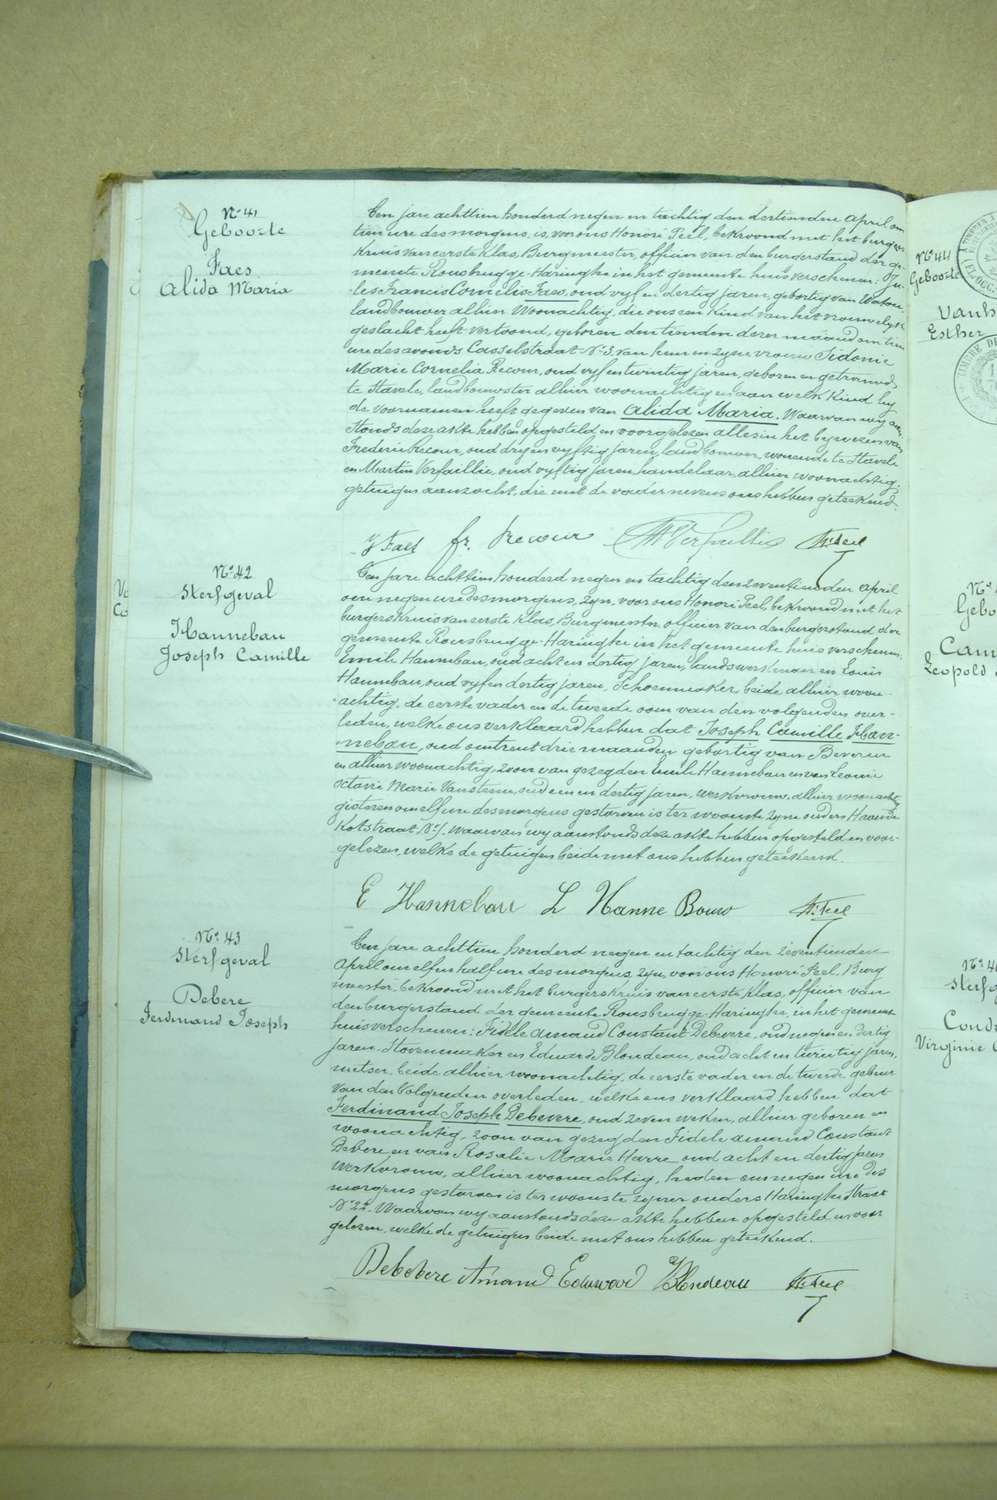 Nº 41
Geboorte
Faes
Alida Maria
Een jare achttien honderd negen en tachtig den dertienden April om
tien ure des morgens, is, voor ons Honoré Feel, bekroond met het burger-
kruis van eerste klas, Burgmeester, officier van den burgerstand der ge-
meente Rousbrugge-Haringhe in het gemeente huis verschenen: 
les Francis Cornelis Faes, oud vyf en dertig jaren, geboortig van Watou,
landbouwer alhier Woonachtig, die ons een kind van het vrouwelyk
geslacht heeft vertoond, geboren den tienden dezer maand om tien
ure des avonds Casselstraat Nº 3, van hem en zyne vrouw Sidonie
Marie Cornelia Recour, oud vyf en twintig jaren, geboren en getrouwd
te Stavele, landbouwster alhier woonachtig en aan welk kind hy
de voornamen heeft gegeven van Alida Maria. Waarvan wy aan-
stonds deze akte hebben opgesteld en voorgelezen alles in het bywezen van
Frederic Recour, oud dry en vyftig jaren, landbouwer, wonende te Stavele
en Martin Verfaillie, oud vyftig jaren, handelaar, alhier woonachtig,
getuigen aanzocht, die met de vader nevens ons hebben geteekend.
J Faes fr. Recour Verfaillie H. Feel
Nº 42
Sterfgeval
Hannebau
Joseph Camille
Een jare achttien honderd negen en tachtig den zeventienden April
om negen ure des morgens, zyn, voor ons Honoré Feel, bekroond met het
burgerskruis van eerste klas, Burgmeester, officier van den burgerstand der
gemeente Rousbrugge-Haringhe in het gemeente huis verschenen:
Emile Hannebau, oud acht en dertig jaren, landswerkman en Louis
Hannebau, oud vyf en dertig jaren, Schoenmaker, beide alhier woon-
achtig, de eerste vader en de tweede oom van den volgenden over-
leden, welke ons verklaard hebben dat Joseph Camille Han-
nebau, oud omtrent drie maanden, geboortig van Beveren
en alhier woonachtig, zoon van gezegden Emile Hannebau en van Leonie
Octavie Marie Vansteene, oud een en dertig jaren, werkvrouw, alhier woonachtig,
gisteren om elf ure des morgens gestorven is ter woonste zyner ouders
Kotstraat, Waarvan wy aanstonds deze akte hebben opgesteld en voor-
gelezen, welke de getuigen beide met ons hebben geteekend.
E Hannebau L Hanne Bouw H. Feel
Nº 43
Sterfgeval
Debere
Ferdinand Joseph
Een jare achttien honderd negen en tachtig den zeventienden
April om elf en half ure des morgens, zyn, voor ons Honoré Feel, Burg-
meester, bekroond met het burgerskruis van eerste klas, officier van
den burgerstand der gemeente Rousbrugge-Haringhe, in het gemeente
huis verschenen: Fidèle Amand Constant Debevere, oud negen en dertig
jaren, Stovenmaker en Eduard Blondeau, oud acht en twintig jaren,
metser, beide alhier woonachtig, de eerste vader en de tweede gebuur
van den Volgenden overleden, welke ons verklaard hebben dat
Ferdinand Joseph Debevere, oud zeven weken, alhier geboren en
woonachtig, zoon van gezegden Fidèle Amand Constant
Debere, en van Rosalie Marie Harre, oud acht en dertig jaren
Werkvrouw, alhier woonachtig, heden om negen ure des
morgens gestorven is ter woonste zyner ouders Haringhe straat
Nº 22. Waarvan wy aanstonds deze akte hebben opgesteld en voor-
gelezen, welke de getuigen beide met ons hebben geteekend.
Debebere Amand Eduward Blondeau H. Feel
Nº 44
Geboorte
Vanh
Esther
Nº
Gebo
Cam
Leopold
Nº 46
Sterfg
Cond
Virginie